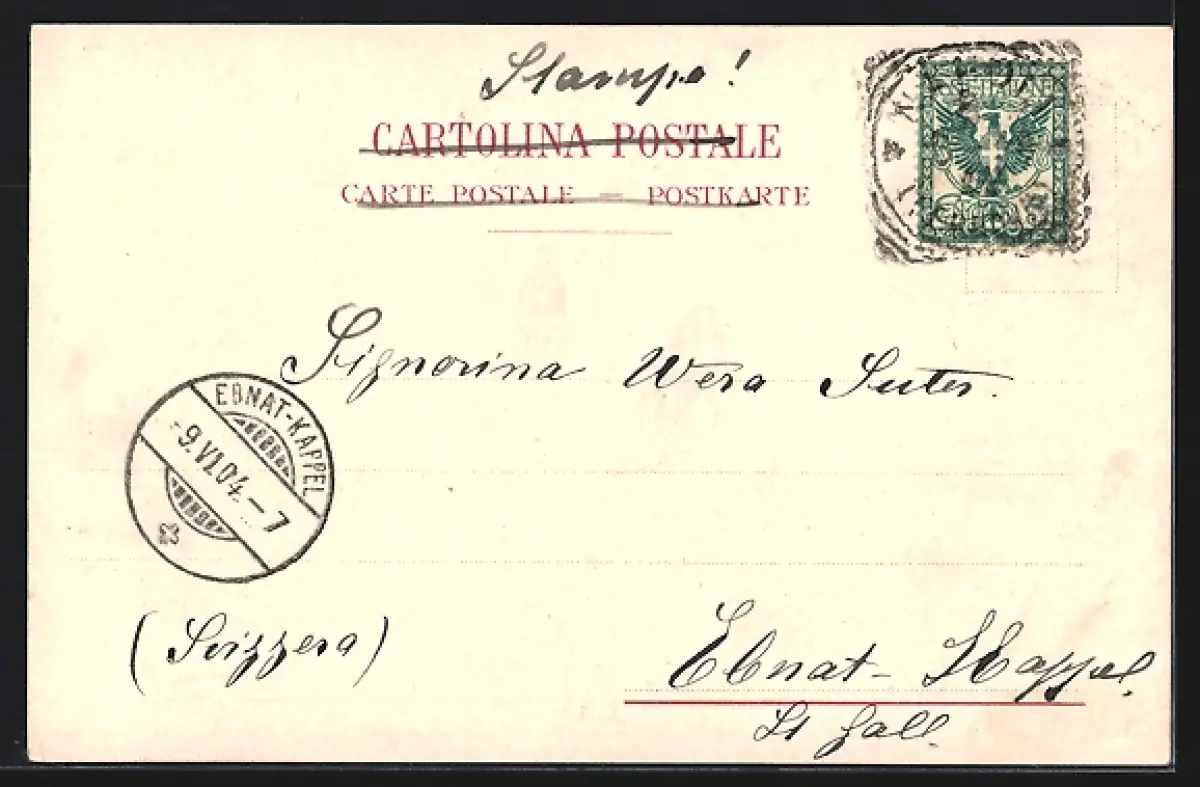 Stampe!
CARTOLINA POSTALE
CARTE POSTALE — POSTKARTE
POSTE ITALIANE
Signorina Wera Suter.
EBNAT-KAPPEL
-9.VI.04.-7
(Svizzera)
Ebnat-Kappel.
St Gall.